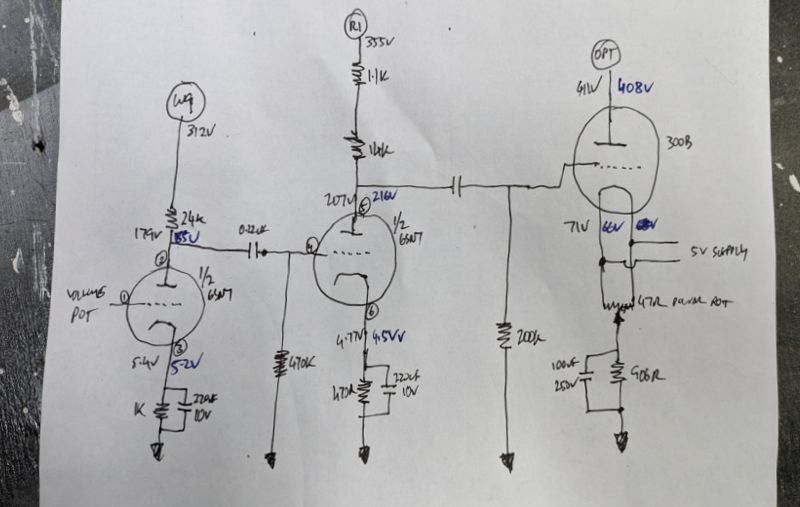 R1
355V
1.1K
14K
OPT
411V 408V
300B
312V
24K
179V
0.22uF
207V 216V
1/2
6SN7
5
4
6
2
1
3
1/2
6SN7
VOLUME
POT
71V 66V
5V SUPPLY
47R POWER POT
5.4V 5.2V
4.77V 4.5VV
470K
200K
1K
220uF
10V
470R
220uF
10V
100uF
250V
906R